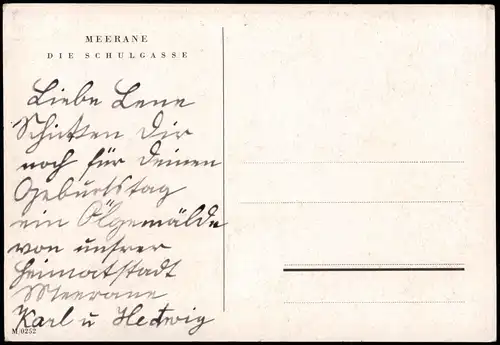 MEERANE
DIE SCHULGASSE
Liebe Lene
Schikten Dir
noch für deinen
Geburtstag
ein Ölgemälde
von unsrer
Heimatstadt
Meerane
Karl u Hedwig
M/0252